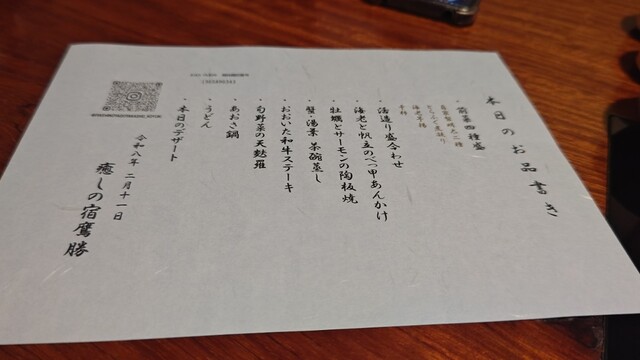 本日のお品書き
・前菜四種盛
・活造り盛合わせ
・海老と帆立のべっ甲あんかけ
・牡蠣とサーモンの陶板焼
・蟹・湯葉 茶碗蒸し
・おおいた和牛ステーキ
・旬野菜の天麩羅
・あおさ鍋
・うどん
・本日のデザート
令和八年 二月十一日
癒しの宿鷹勝